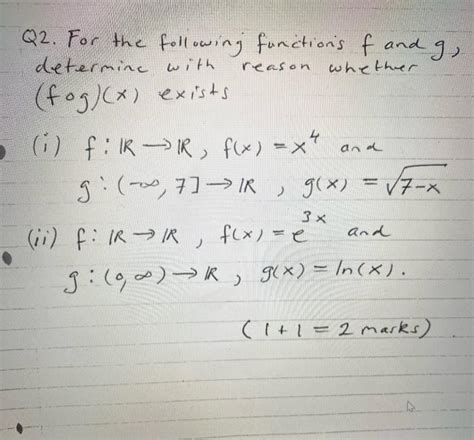 Q2. For the following functions f and g,
determine with reason whether
(fog)(x) exists
(i) f: ℝ → ℝ, f(x) = x⁴ and
g: (-∞, 7] → ℝ, g(x) = √(7-x)
(ii) f: ℝ → ℝ, f(x) = e³ˣ and
g: (0, ∞) → ℝ, g(x) = ln(x).
(1+1 = 2 marks)